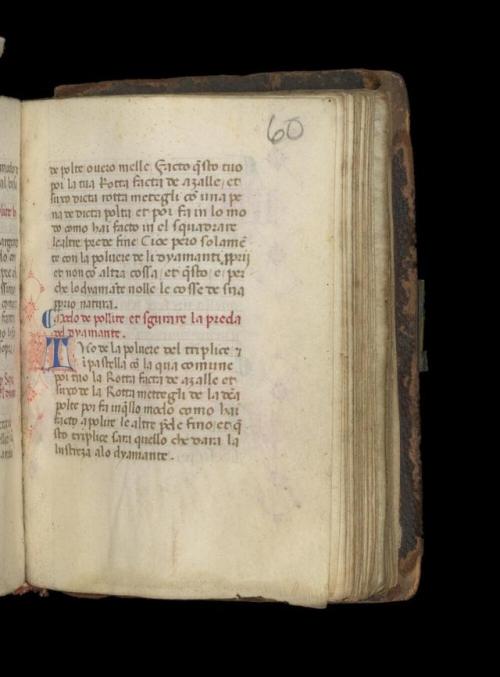 60
de polte overo nielle. Facto q̄sto tuo
poi la tua Rotta facta de azalle, et
suxo dicta rotta metegli cō una pe
na de dicta polta et poi fa in lo mo
do como hai facto in el squadrare
le altre prede fine. Cioe pero solamē
te con la polvere de li dyamanti p̄prii
et non cō altra cossa, et q̄sto, e, per
che lo dyamāte nolle le cosse de sua
p̄pria natura.
Modo de pollire et sgurare la preda
del dyamante.
Tuo de la polvere del triplice ⁊
ipastella cō la qua comune
poi tuo la Rotta facta de azalle et
suxo de la Rotta metegli de la dc̄a
polte poi fa inq̄llo modo como hai
facto a polire le altre p̄de fine, et q̄
sto triplice sara quello che dara la
lustreza alo dyamante.